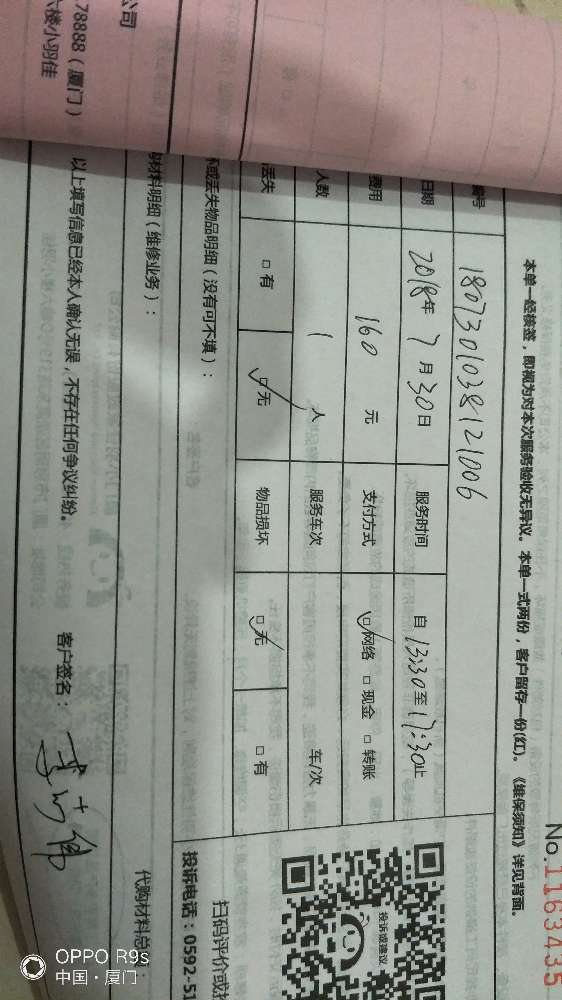 No.1163435
本单一经核签，即视为对本次服务验收无异议。本单一式两份，客户留存一份(红)。《维保须知》详见背面。
编号 1807301038121006
日期 2018年 7月30日 服务时间 自 13:30至17:30止
费用 160 元 支付方式 网络 现金 转账
人数 1 人 服务车次 车/次
丢失 有 无 物品损坏 无 有
坏或丢失物品明细（没有可不填）：
材料明细（维修业务）：
代购材料总
以上填写信息已经本人确认无误，不存在任何争议纠纷。 客户签名：
投诉或建议
扫码评价或投
投诉电话：0592-51
公司
78888（厦门）
楼小羽佳
OPPO R9s
中国·厦门